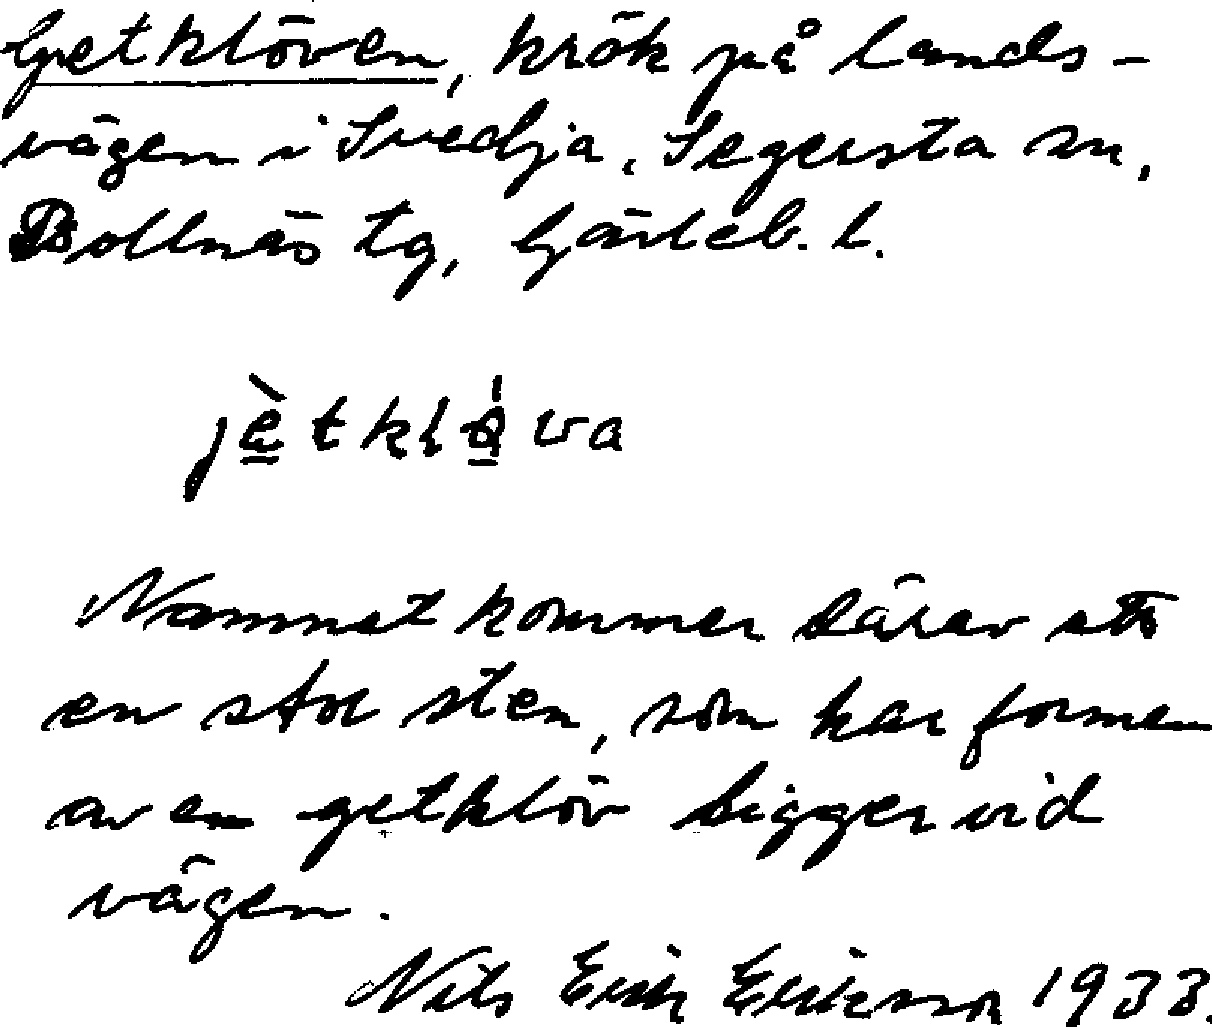 Getklöven, krök på lands-
vägen i Svedja, Segersta sn,
Bollnäs tg, Gävleb. l.
Namnet kommer därav att
en stor sten, som har formen
av en getklöv ligger vid
vägen.
Nils Erik Eriksson 1933.